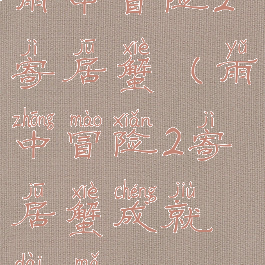 雨中冒險2
jì jū xiè yǔ
寄居蟹(雨
zhōng mào xiǎn jì
中冒險2寄
jū xiè chéng jiù
居蟹成就
dài mǎ